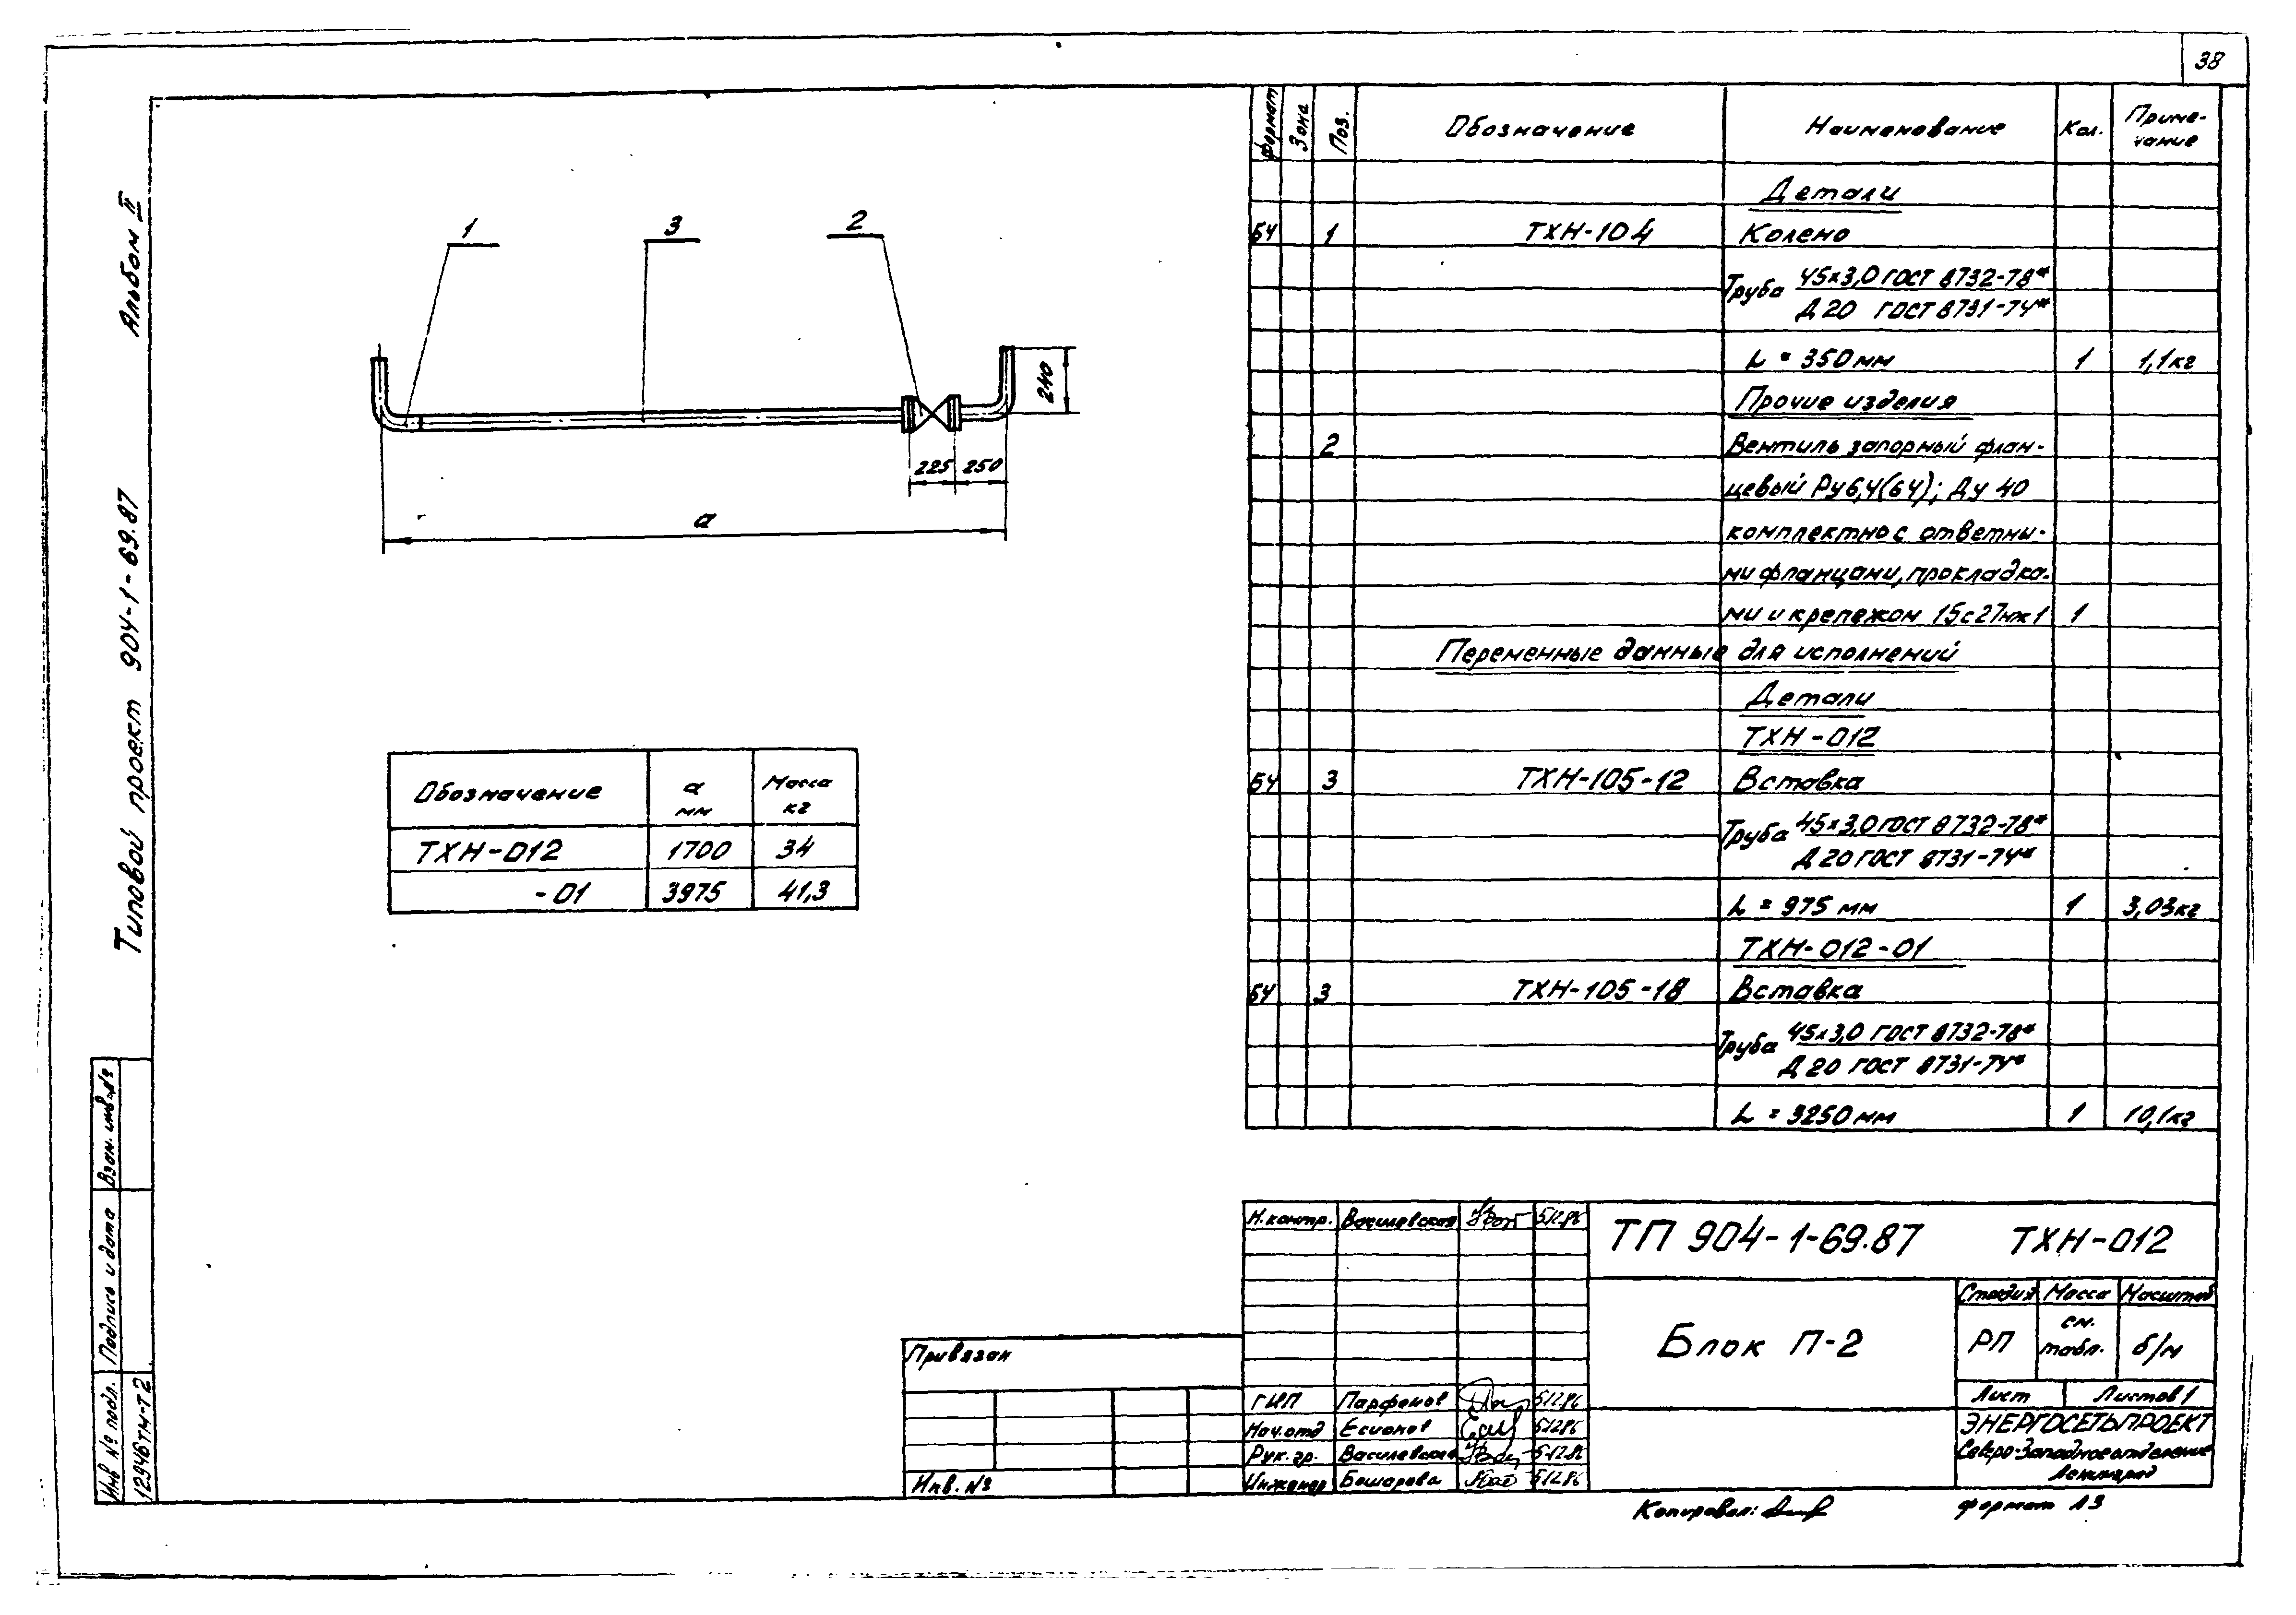 38
Альбом II
Типовой проект 904-1-69.87
Взам. инв. №
Подпись и дата
Инв № подл.
12946тм-т2
1
3
2
240
225
250
а
Обозначение
а мм
Масса кг
ТХН-012
1700
34
-01
3975
41,3
Формат
Зона
Поз.
Обозначение
Наименование
Кол.
Приме-
чание
Детали
БЧ
1
ТХН-104
Колено
Труба 45х3,0 ГОСТ 8732-78*
Д20 ГОСТ 8731-74*
L = 350 мм
1
1,1кг
Прочие изделия
2
Вентиль запорный флан-
цевый Ру6,4(64); Ду 40
комплектно с ответны-
ми фланцами, прокладка-
ми и крепежом 15с27нж1
1
Переменные данные для исполнений
Детали
ТХН-012
БЧ
3
ТХН-105-12
Вставка
Труба 45х3,0 ГОСТ 8732-78*
Д20 ГОСТ 8731-74*
L = 975 мм
1
3,03кг
ТХН-012-01
БЧ
3
ТХН-105-18
Вставка
Труба 45х3,0 ГОСТ 8732-78*
Д20 ГОСТ 8731-74*
L = 3250 мм
1
10,1кг
Н.контр.
Василевская
5.12.86
ТП 904-1-69.87
ТХН-012
Блок П-2
Стадия
Масса
Масштаб
РП
см. табл.
б/м
Лист
Листов 1
ГИП
Парфенов
5.12.86
Нач.отд
Есионов
5.12.86
Рук. гр.
Василевская
5.12.86
Инженер
Башарова
5.12.86
ЭНЕРГОСЕТЬПРОЕКТ
Северо-Западное отделение
Ленинград
Привязан
Инв. №
Копировал:
формат А3